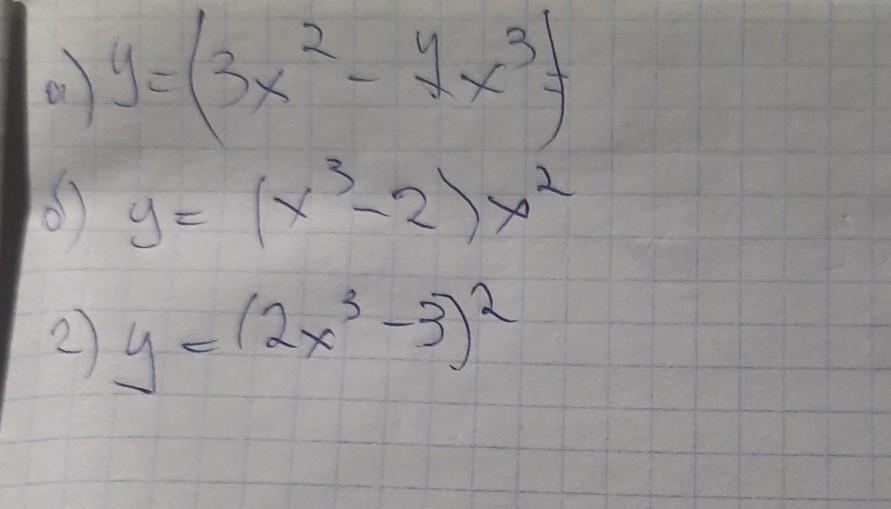 а) y = (3x² - 7x³)
б) y = (x³ - 2)x²
г) y = (2x³ - 3)²